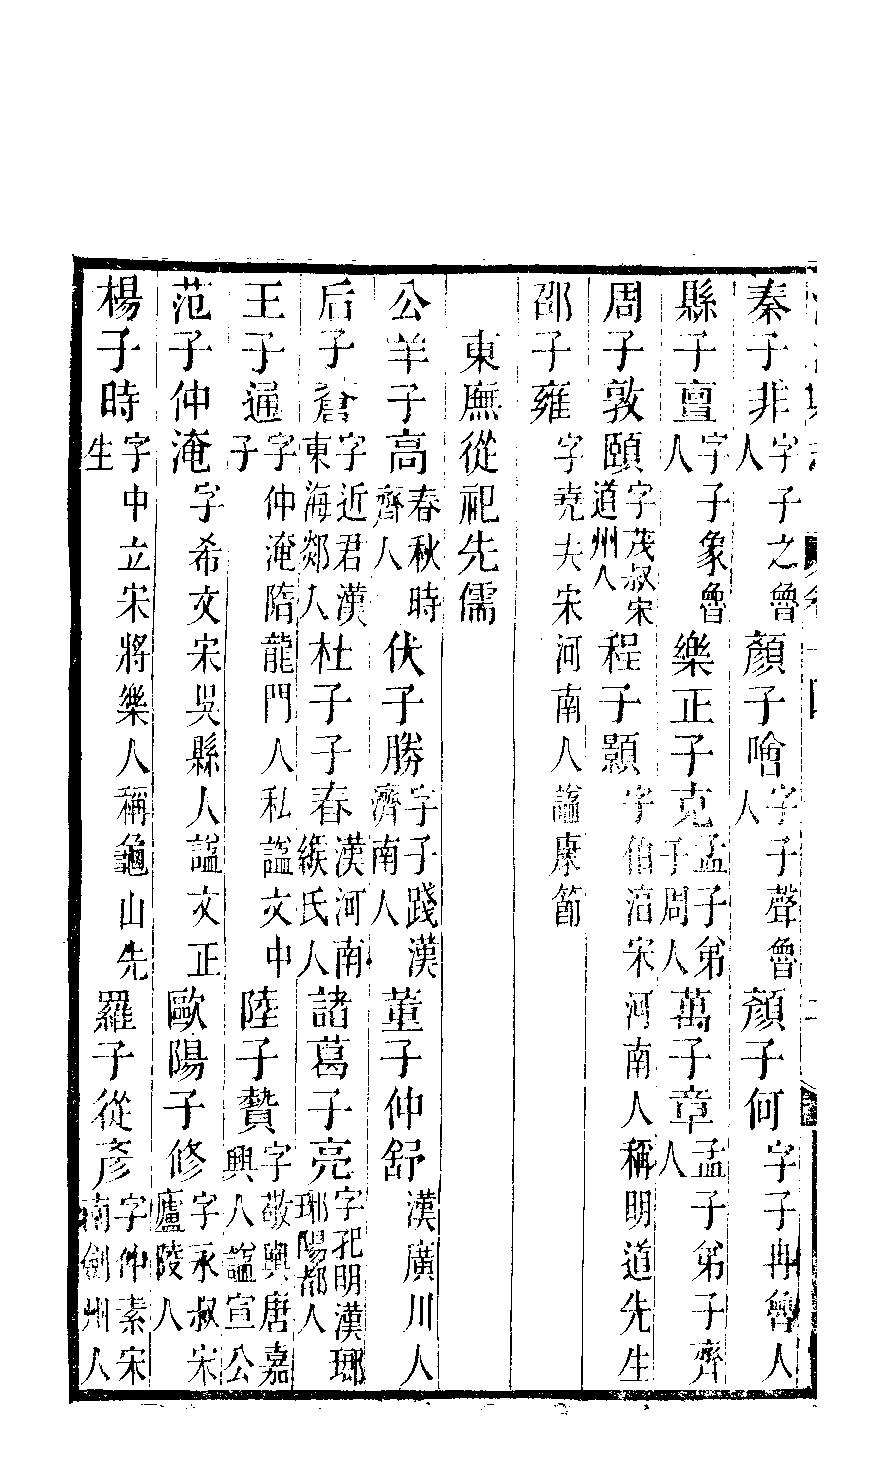 秦子非字子之魯人顏子噲字子聲魯人顏子何字子冉魯人
縣子亶字子象魯人樂正子克孟子弟子周人萬子章孟子弟子齊人
周子敦頤字茂叔宋道州人程子顥字伯淳宋河南人稱明道先生
邵子雍字堯夫宋河南人諡康節
東廡從祀先儒
公羊子高春秋時齊人伏子勝字子踐漢濟南人董子仲舒漢廣川人
后子蒼字近君漢東海郯人杜子子春漢河南緱氏人諸葛子亮字孔明漢瑯琊陽都人
王子通字仲淹隋龍門人私諡文中子陸子贄字敬輿唐嘉興人諡宣公
范子仲淹字希文宋吳縣人諡文正歐陽子修字永叔宋廬陵人
楊子時字中立宋將樂人稱龜山先生羅子從彥字仲素宋南劍州人